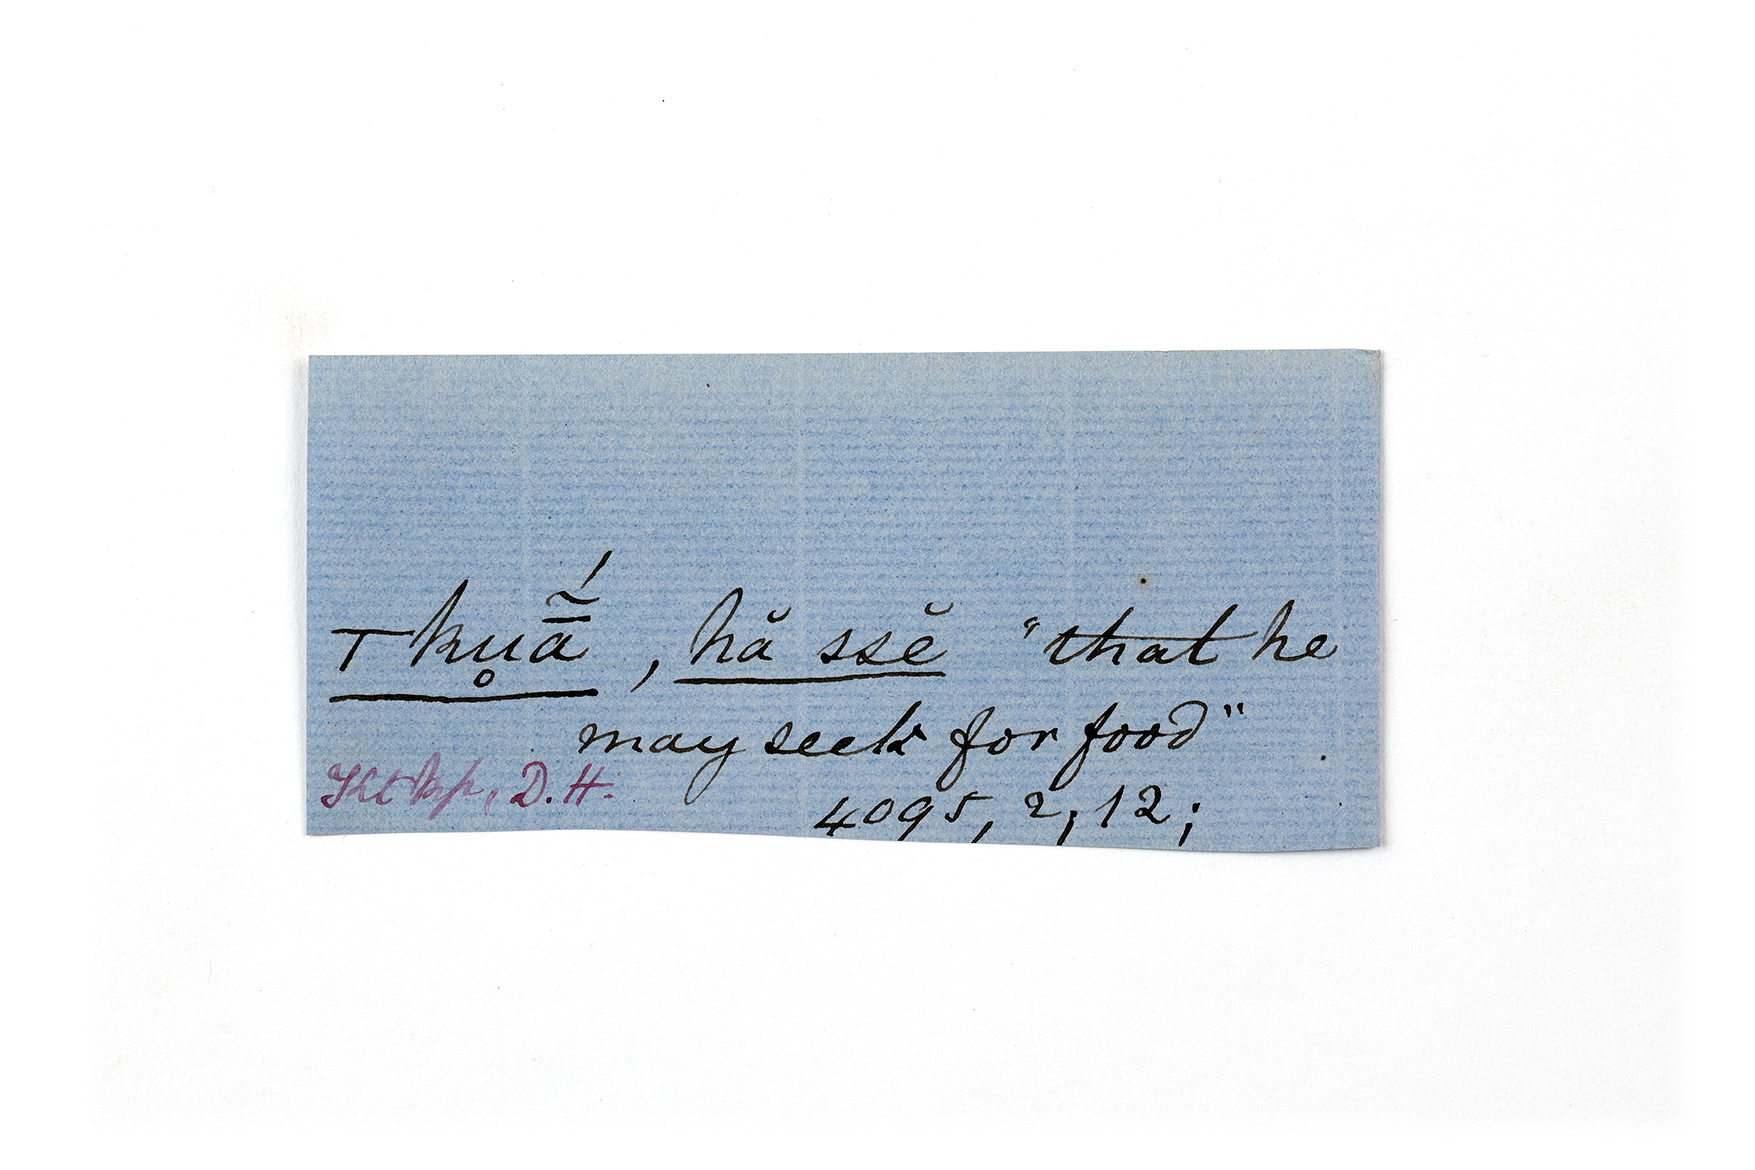 ⊤ku̥ā̃́, hă ssĕ "that he
may seek for food"
D. H.
4095, 2, 12;